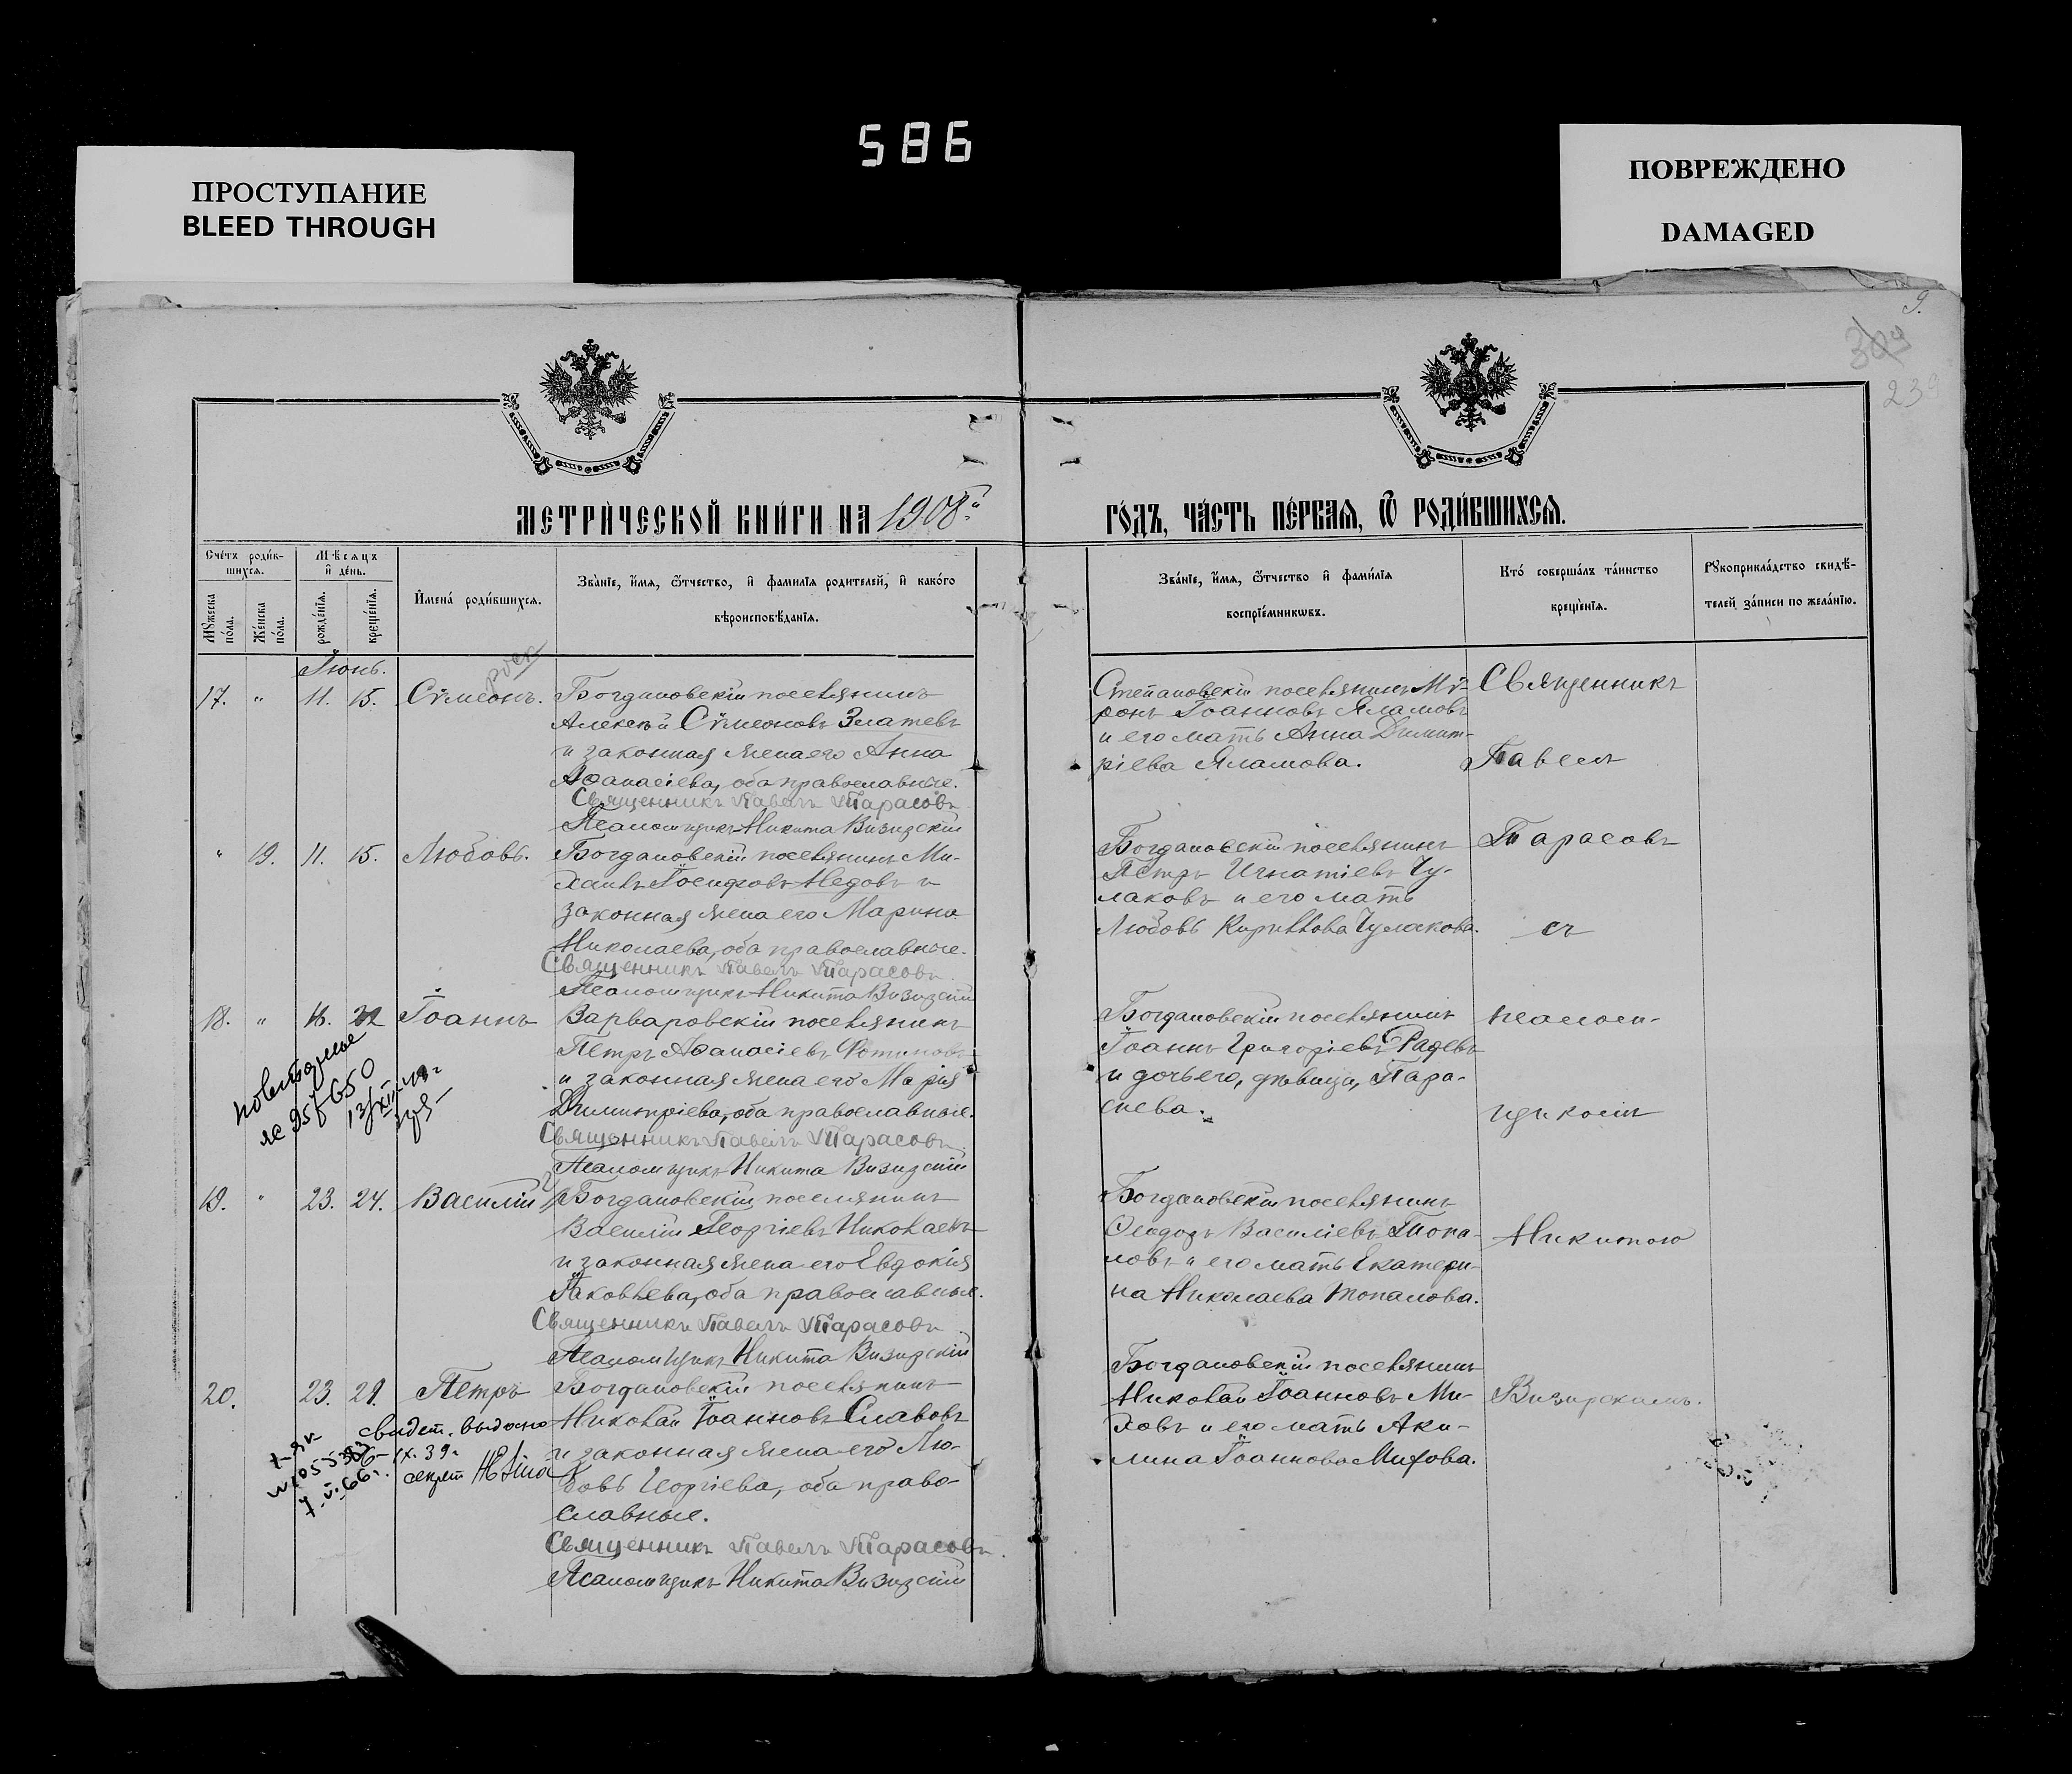 586
ПРОСТУПАНИЕ
BLEED THROUGH
ПОВРЕЖДЕНО
DAMAGED
9.
309
239
МЕТРИ́ЧЕСКОЙ КНИ́ГИ НА 1908й
ГО́ДЪ, ЧА́СТЬ ПЕ́РВАЯ, Ѿ РОДИ́ВШИХСЯ.
Сче́тъ роди́в-
шихся.
Мѣсяцъ
и де́нь.
Мꙋжеска
по́ла.
Же́нска
по́ла.
рожде́нїя.
креще́нїя.
Имена́ роди́вшихся.
Зва́нїе, и́мя, ѻ́тчество, и фами́лїя родителей, и како́го
вѣроисповѣ́данїя.
Зва́нїе, и́мя, ѻ́тчество и фами́лїя
воспрїе́мникѡвъ.
Кто́ соверша́лъ та́инство
креще́нїя.
Рꙋкоприкла́дство свидѣ́-
телей за́писи по жела́нїю.
Іюнь.
17. " 11. 15. Сѵмеонъ.
Богдановскій поселянинъ
Алексѣй Сѵмеоновъ Златевъ
и законная жена его Анна
Аѳанасіева, оба православные.
Священникъ Павелъ Тарасовъ
Псаломщикъ Никита Визирскій
Степановскій поселянинъ Мѵ-
ронъ Іоанновъ Яламовъ
и его мать Анна Димит-
ріева Яламова.
" 19. 11. 15. Любовь.
Богдановскій поселянинъ Ми-
хаилъ Іосифовъ Недовъ и
законная жена его Марина
Николаева, оба православные.
Священникъ Павелъ Тарасовъ
Псаломщикъ Никита Визирскій
Богдановскій поселянинъ
Петръ Игнатіевъ Чу-
лаковъ и его мать
Любовь Кириллова Чулакова.
18. " 16. 22 Іоаннъ
Варваровскій поселянинъ
Петръ Аѳанасіевъ Фотиновъ
и законная жена его Марія
Димитріева, оба православные.
Священникъ Павелъ Тарасовъ
Псаломщикъ Никита Визирскій
повторное
13/XII
Богдановскій поселянинъ
Іоаннъ Григоріевъ Радевъ
и дочь его, дѣвица, Пара-
скева.
19. " 23. 24. Василій
Богдановскій поселянинъ
Василій Георгіевъ Николаевъ
и законная жена его Евдокія
Іаковлева, оба православные.
Священникъ Павелъ Тарасовъ
Псаломщикъ Никита Визирскій
Богдановскій поселянинъ
Ѳеодоръ Василіевъ Топа-
ловъ и его мать Екатери-
на Николаева Топалова.
20. 23. 29. Петръ
Богдановскій поселянинъ
Николай Іоанновъ Славовъ
и законная жена его Лю-
бовь Георгіева, оба право-
славные.
Священникъ Павелъ Тарасовъ
Псаломщикъ Никита Визирскій
свидет. выдано
IX. 39 г
секрет
Богдановскій поселянинъ
Николай Іоанновъ Ми-
ховъ и его мать Аки-
лина Іоаннова Михова.
Священникъ
Павелъ
Тарасовъ
съ
псалом-
щикомъ
Никитою
Визирскимъ.